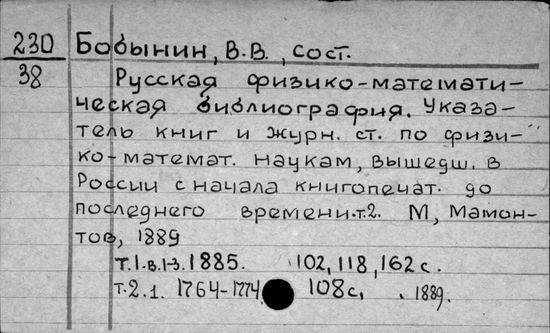 230 Бобынин, В.В., сост.
38 Русская физико-математи-
ческая библиография. Указа-
тель книг и журн. ст. по физи-
ко-математ. наукам, вышедш. в
России с начала книгопечат. до
последнего времени.т.2. М, Мамон-
тов, 1889
т.1.в.1-3. 1885. 102, 118, 162 с.
т.2.1. 1764-1774 108с, 1889.